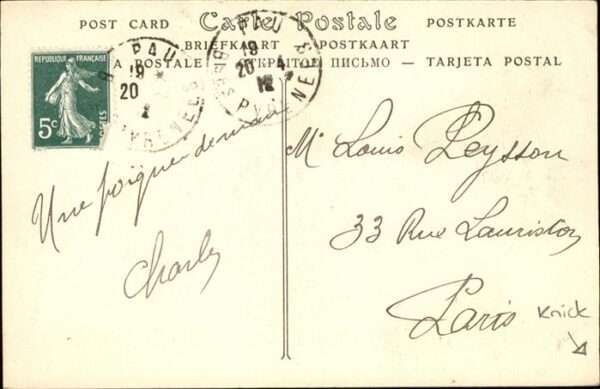 POST CARD Carte Postale POSTKARTE
BRIEFKAART POSTKAART
POSTALE ОТКРЫТОЕ ПИСЬМО — TARJETA POSTAL
REPUBLIQUE FRANÇAISE
5c
PAU
19
20
PAU
19
20 4
12
Une poignée de main
Charly
Mr Louis Peysson
33 Rue Lauriston
Paris
Knick